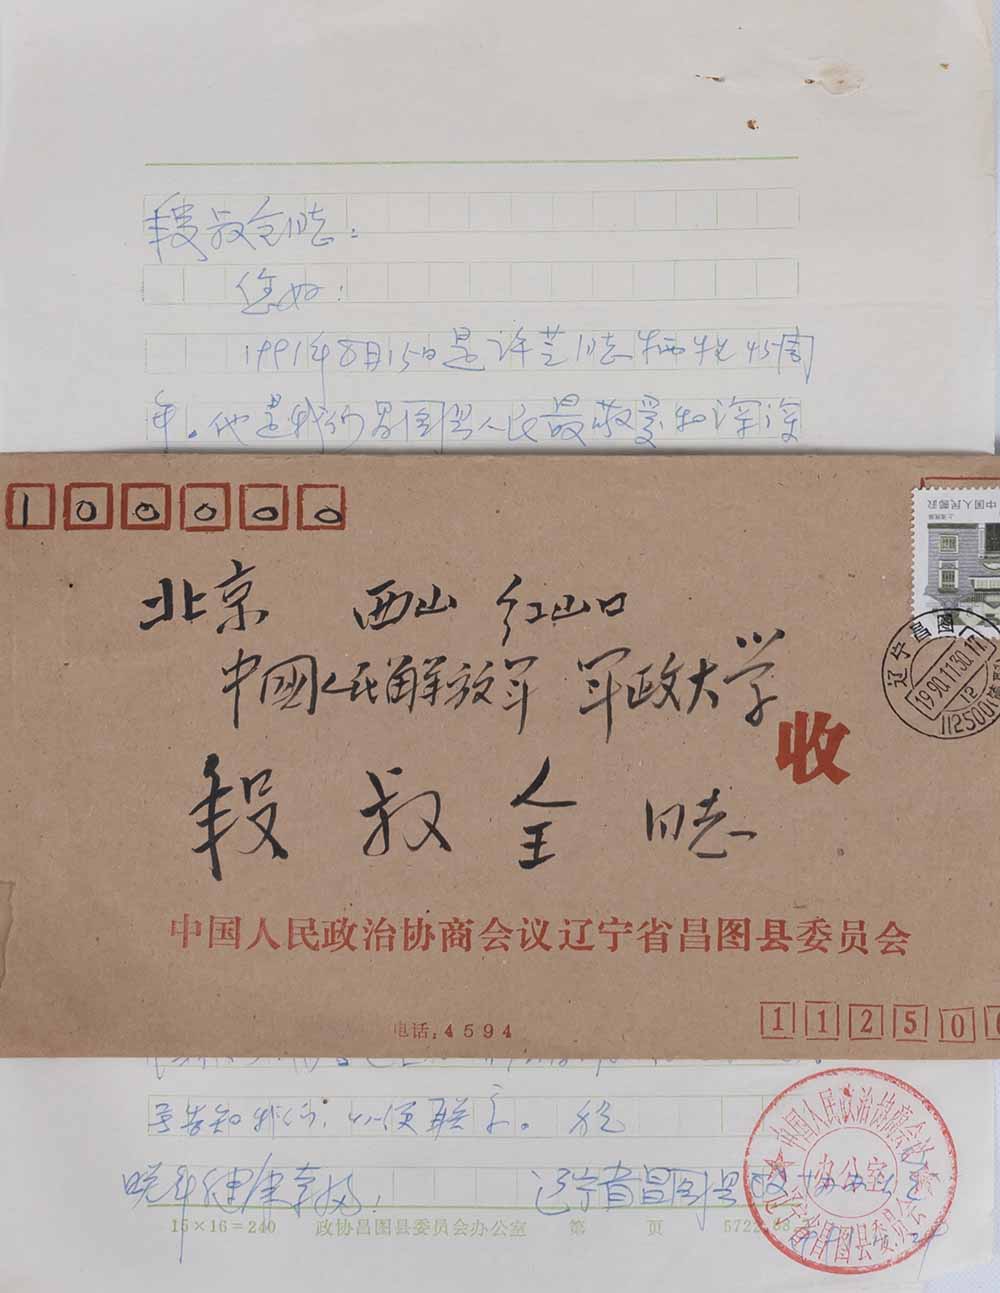 段叔全同志：
您好！
1991年8月15日是许芝同志牺牲45周
年。他是我们昌图县人民最敬爱和深深
100000
中国人民邮政
上海民居
北京 西山 红山口
辽宁昌图
1990.11.30.17
12
112500
中国人民解放军 军政大学
收
段 叔 全 同志
中国人民政治协商会议辽宁省昌图县委员会
电话:4594
11250
号告知我们，以便联系。祝
晚年健康幸福！ 辽宁省昌图县政协办公室
中国人民政治协商会议
办公室
辽宁省昌图县委员会
15×16=240 政协昌图县委员会办公室 第 页 5722.88.